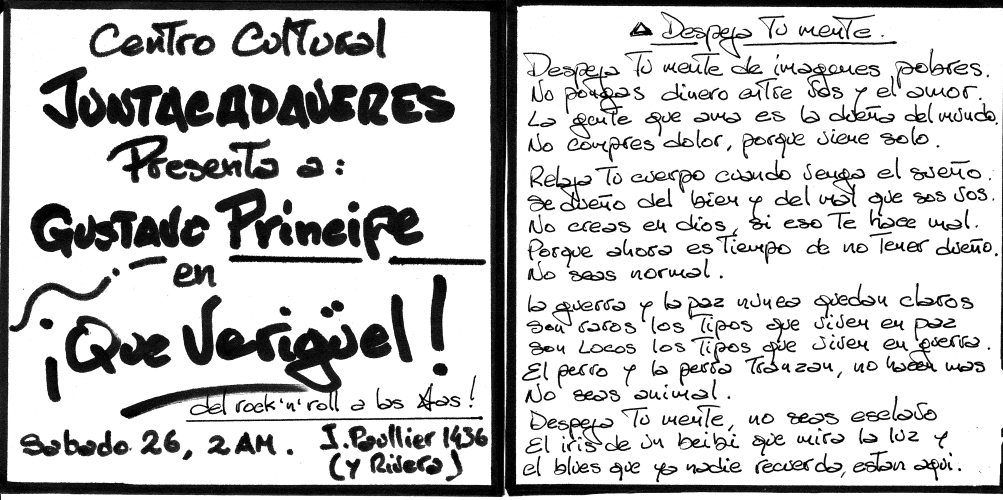 Centro Cultural
JUNTACADAVERES
Presenta a:
GUSTAVO Principe
en
¡Que Verigüel!
del rock'n'roll a las 4as!
Sabado 26, 2 AM.
J. Paullier 1436
(y Rivera)
Despeja Tu mente.
Despeja Tu mente de imagenes pobres.
No pongas dinero entre vos y el amor.
La gente que ama es la dueña del mundo.
No compres dolor, porque viene solo.
Relaja Tu cuerpo cuando venga el sueño.
Se dueño del bien y del mal que sos vos.
No creas en dios, si eso Te hace mal.
Porque ahora es Tiempo de no Tener dueño.
No seas normal.
la guerra y la paz nunca quedan claros
son raros los Tipos que viven en paz
son Locos los Tipos que viven en guerra.
El perro y la perra Tranzan, no hacen mas
No seas animal.
Despeja Tu mente, no seas esclavo
El iris de un beibi que mira la luz y
el blues que ya nadie recuerda, estan aqui.